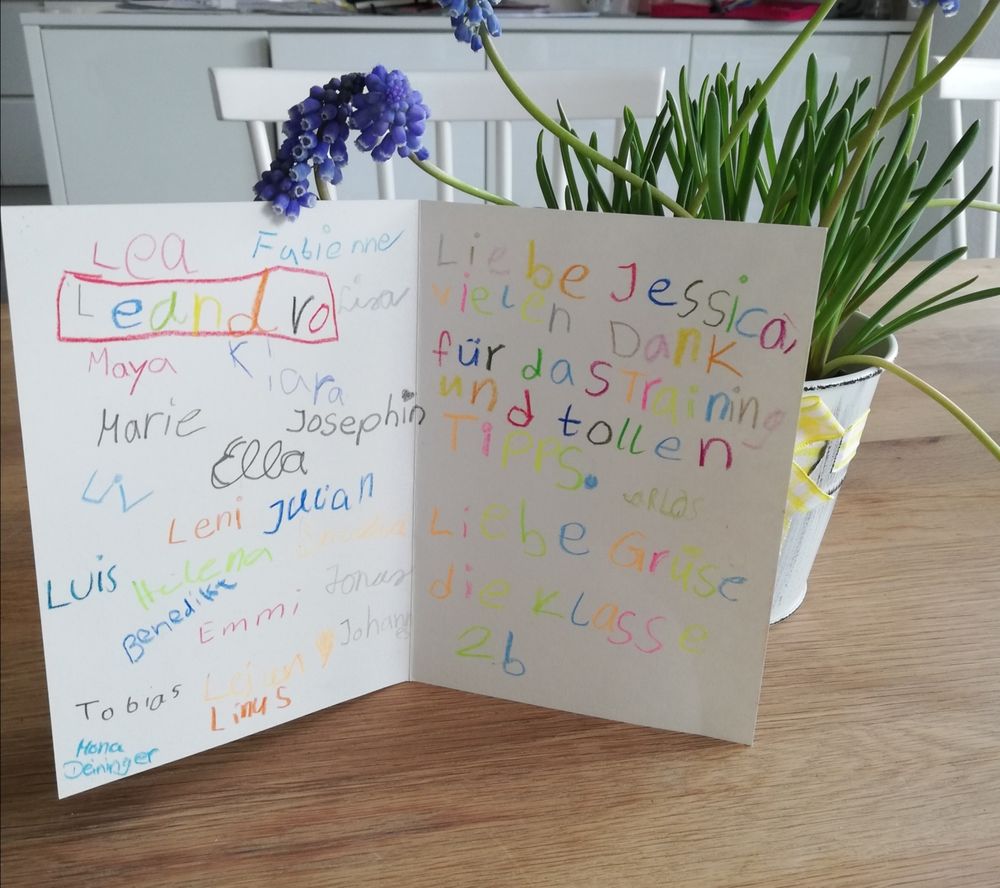 Lea Fabienne
Leandro Lisa
Maya Kiara
Marie Josephin
Ella
Leni Julian
Luis Helena
Benedikt Jonas
Emmi Johannes
Tobias
Linus
Mona
Deininger
Liebe Jessica,
vielen Dank
für das Training
und tollen
Tipps.
Liebe Grüse
die Klasse
2b